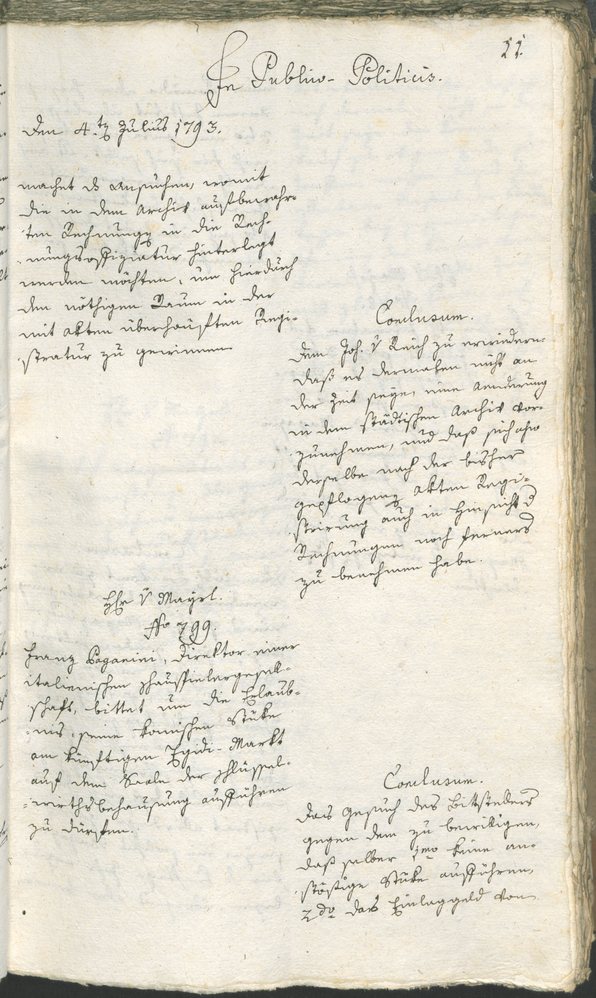 11.
In Publico-Politicis.
Den 4.ten Julius 1793.
machet das Ansuchen, womit
die in dem Archiv aufbewahr-
ten Rechnungen in die Rech-
nungsoffiziatur hinterlegt
werden möchten, um hierdurch
den nöthigen Raum in der
mit Akten überhäuften Regi-
stratur zu gewinnen.
Conclusum.
Dem Joh. v Reich zu erwiedern
daß es dermalen nicht an
der Zeit seye, eine Aenderung
in dem städtischen Archiv vor-
zunehmen, und daß sich also
derselbe nach der bisher
gepflogenen Akten Regi-
strirung auch in Hinsicht der
Rechnungen noch ferners
zu benehmen habe.
Hhr v Mayrl.
No 799.
Franz Paganini, Direktor einer
italienischen Schauspielergesell-
schaft, bittet um die Erlaub-
nis, seine komischen Stüke
am künftigen Egidi-Markt
auf dem Saale der Schlüssel-
wirthsbehausung aufführen
zu dürfen.
Conclusum.
Das Gesuch des Bittstellers
gegen dem zu bewilligen,
daß selber 1mo keine an-
stößige Stüke aufführen,
2do das Einlaggeld von